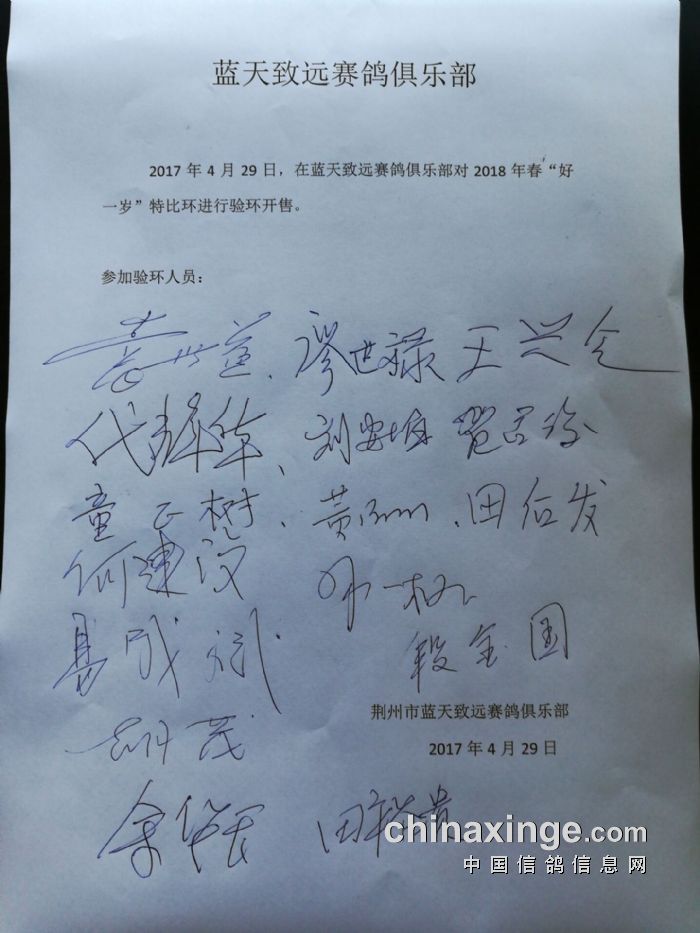 蓝天致远赛鸽俱乐部
2017 年 4 月 29 日，在蓝天致远赛鸽俱乐部对 2018 年春“好
一岁”特比环进行验环开售。
参加验环人员：
廖世禄 王兴
代 华、刘
童正树、黄 田后发
何建汉
易成斌 段金国
荆州市蓝天致远赛鸽俱乐部
胡茂
2017 年 4 月 29 日
余华 田
chinaxinge.com
中国信鸽信息网